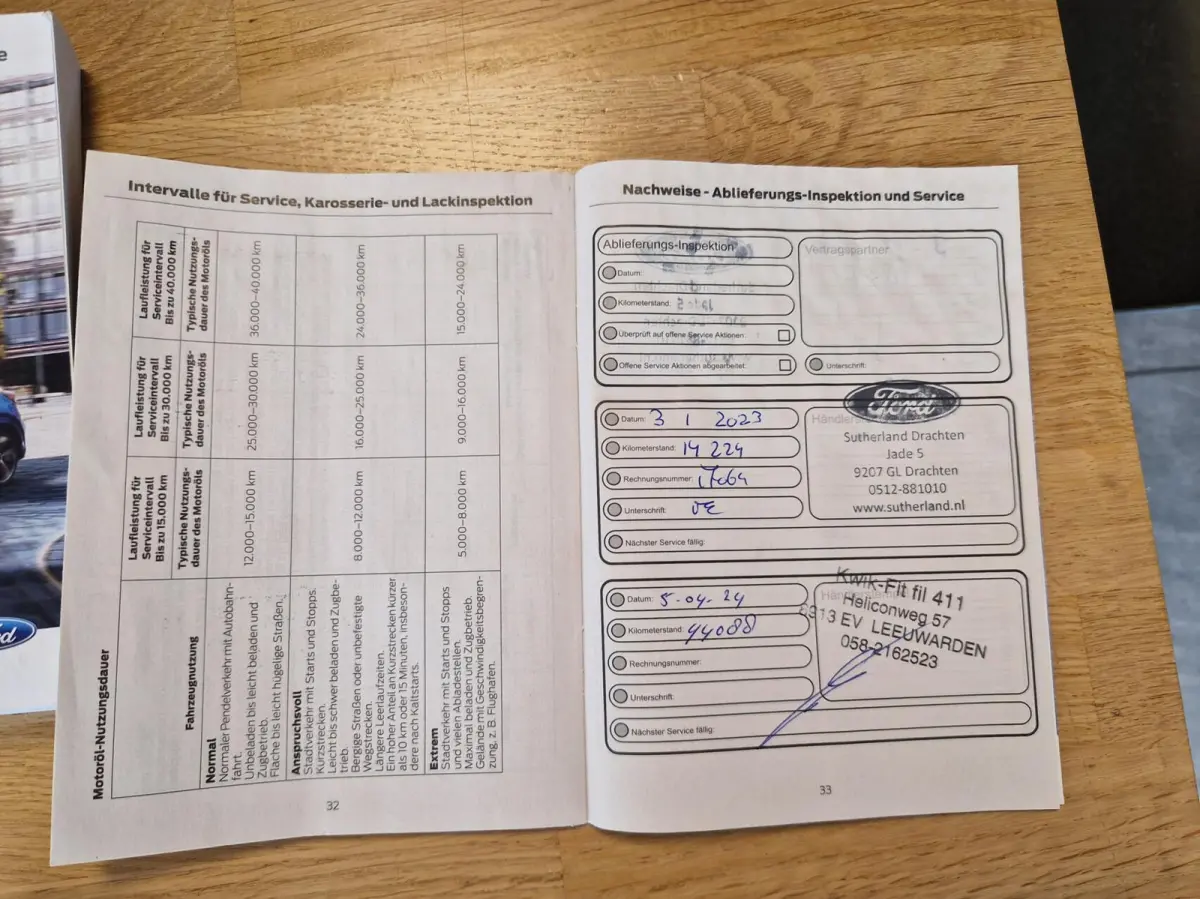 e
Ford
Intervalle für Service, Karosserie- und Lackinspektion
Motoröl-Nutzungsdauer
Fahrzeugnutzung
Laufleistung für Serviceintervall Bis zu 15.000 km
Laufleistung für Serviceintervall Bis zu 30.000 km
Laufleistung für Serviceintervall Bis zu 40.000 km
Typische Nutzungs-
dauer des Motoröls
Typische Nutzungs-
dauer des Motoröls
Typische Nutzungs-
dauer des Motoröls
Normal
Normaler Pendelverkehr mit Autobahn-
fahrt.
Unbeladen bis leicht beladen und
Zugbetrieb.
Flache bis leicht hügelige Straßen.
12.000–15.000 km
25.000–30.000 km
36.000–40.000 km
Anspruchsvoll
Stadtverkehr mit Starts und Stopps.
Kurzstrecken.
Leicht bis schwer beladen und Zugbe-
trieb.
Bergige Straßen oder unbefestigte
Wegstrecken.
Längere Leerlaufzeiten.
Ein hoher Anteil an Kurzstrecken kürzer
als 10 km oder 15 Minuten, insbeson-
dere nach Kaltstarts.
8.000–12.000 km
16.000–25.000 km
24.000–36.000 km
Extrem
Stadtverkehr mit Starts und Stopps
und vielen Abladestellen.
Maximal beladen und Zugbetrieb.
Gelände mit Geschwindigkeitsbegren-
zung, z. B. Flughafen.
5.000–8.000 km
9.000–16.000 km
15.000–24.000 km
32
Nachweise - Ablieferungs-Inspektion und Service
Ablieferungs-Inspektion
Vertragspartner
Datum:
Kilometerstand:
Überprüft auf offene Service Aktionen:
Offene Service Aktionen abgearbeitet:
Unterschrift:
Datum: 3 1 2023
Kilometerstand: 14 224
Rechnungsnummer: 17064
Unterschrift:
Nächster Service fällig:
Ford
Sutherland Drachten
Jade 5
9207 GL Drachten
0512-881010
www.sutherland.nl
Datum: 5-04-24
Kilometerstand: 44088
Rechnungsnummer:
Unterschrift:
Nächster Service fällig:
Kwik-Fit fil 411
Heliconweg 57
8913 EV LEEUWARDEN
058-2162523
33